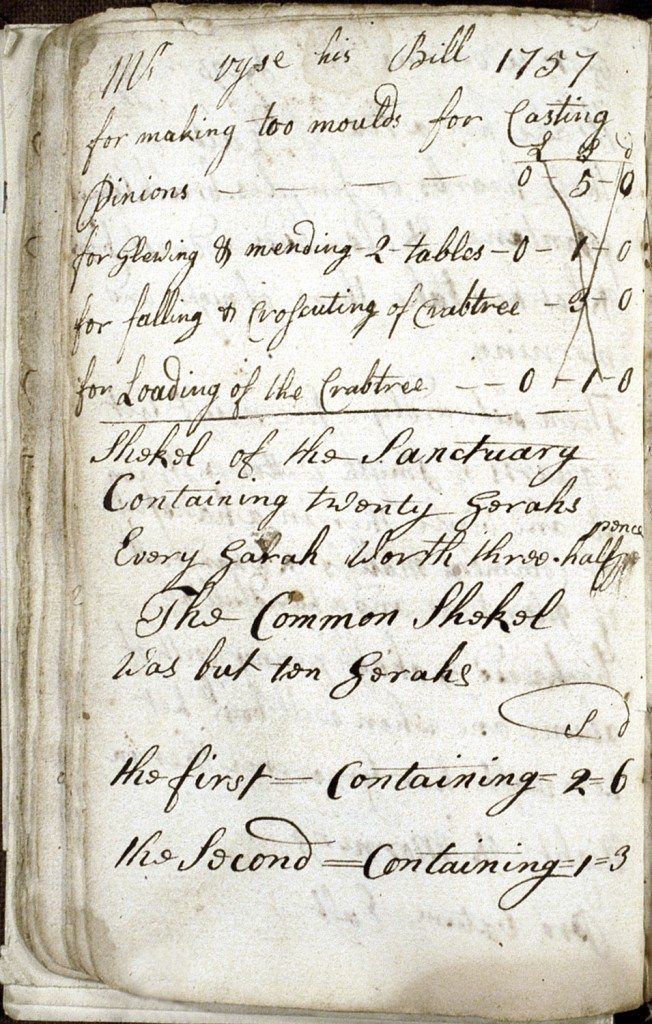 Mr vyse his Bill 1757
for making too moulds for Casting
£ s d
Pinions — — — — 0 - 5 - 0
for Glewing & mending - 2 - tables - 0 - 1 - 0
for falling & Croscuting of Crabtree - 3 - 0
for Loading of the Crabtree — — 0 - 1 - 0
Shekel of the Sanctuary
Containing twenty Gerahs
pence
Every Garah Worth three-half
The Common Shekel
Was but ten Gerahs
s d
the first = Containing = 2 = 6
the Second = Containing = 1 = 3